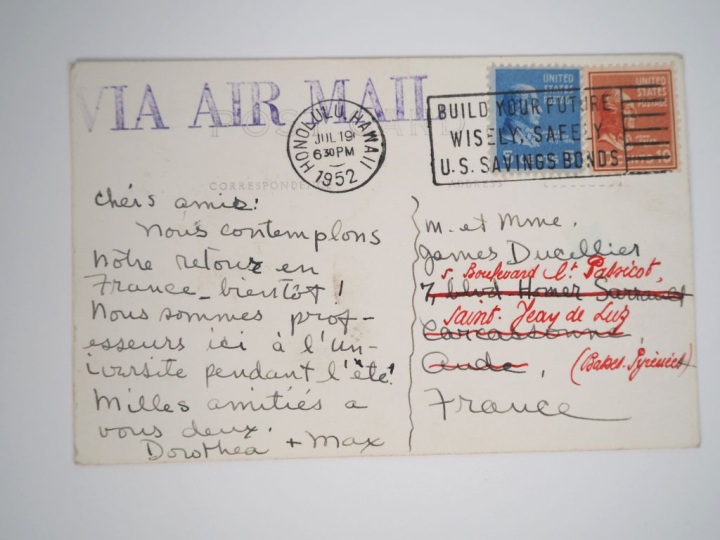 VIA AIR MAIL
POSTCARD
HONOLULU, HAWAII
JUL 19
6 30 PM
1952
BUILD YOUR FUTURE
WISELY, SAFELY
U.S. SAVINGS BONDS
UNITED
STATES
POSTAGE
UNITED
STATES
POSTAGE
10
CORRESPONDENCE
ADDRESS
Chers amis:
Nous contemplons
notre retour en
France - bientôt!
Nous sommes prof-
esseurs ici à l'un-
iversité pendant l'été!
Milles amitiés a
vous deux.
Dorothea + Max
M. et Mme.
James Ducellier
5. Boulevard Lt. Passicot,
7 blvd Homer Sarraut
Saint. Jean de Luz
Carcassonne,
Aude, (Basses. Pyrénées)
France